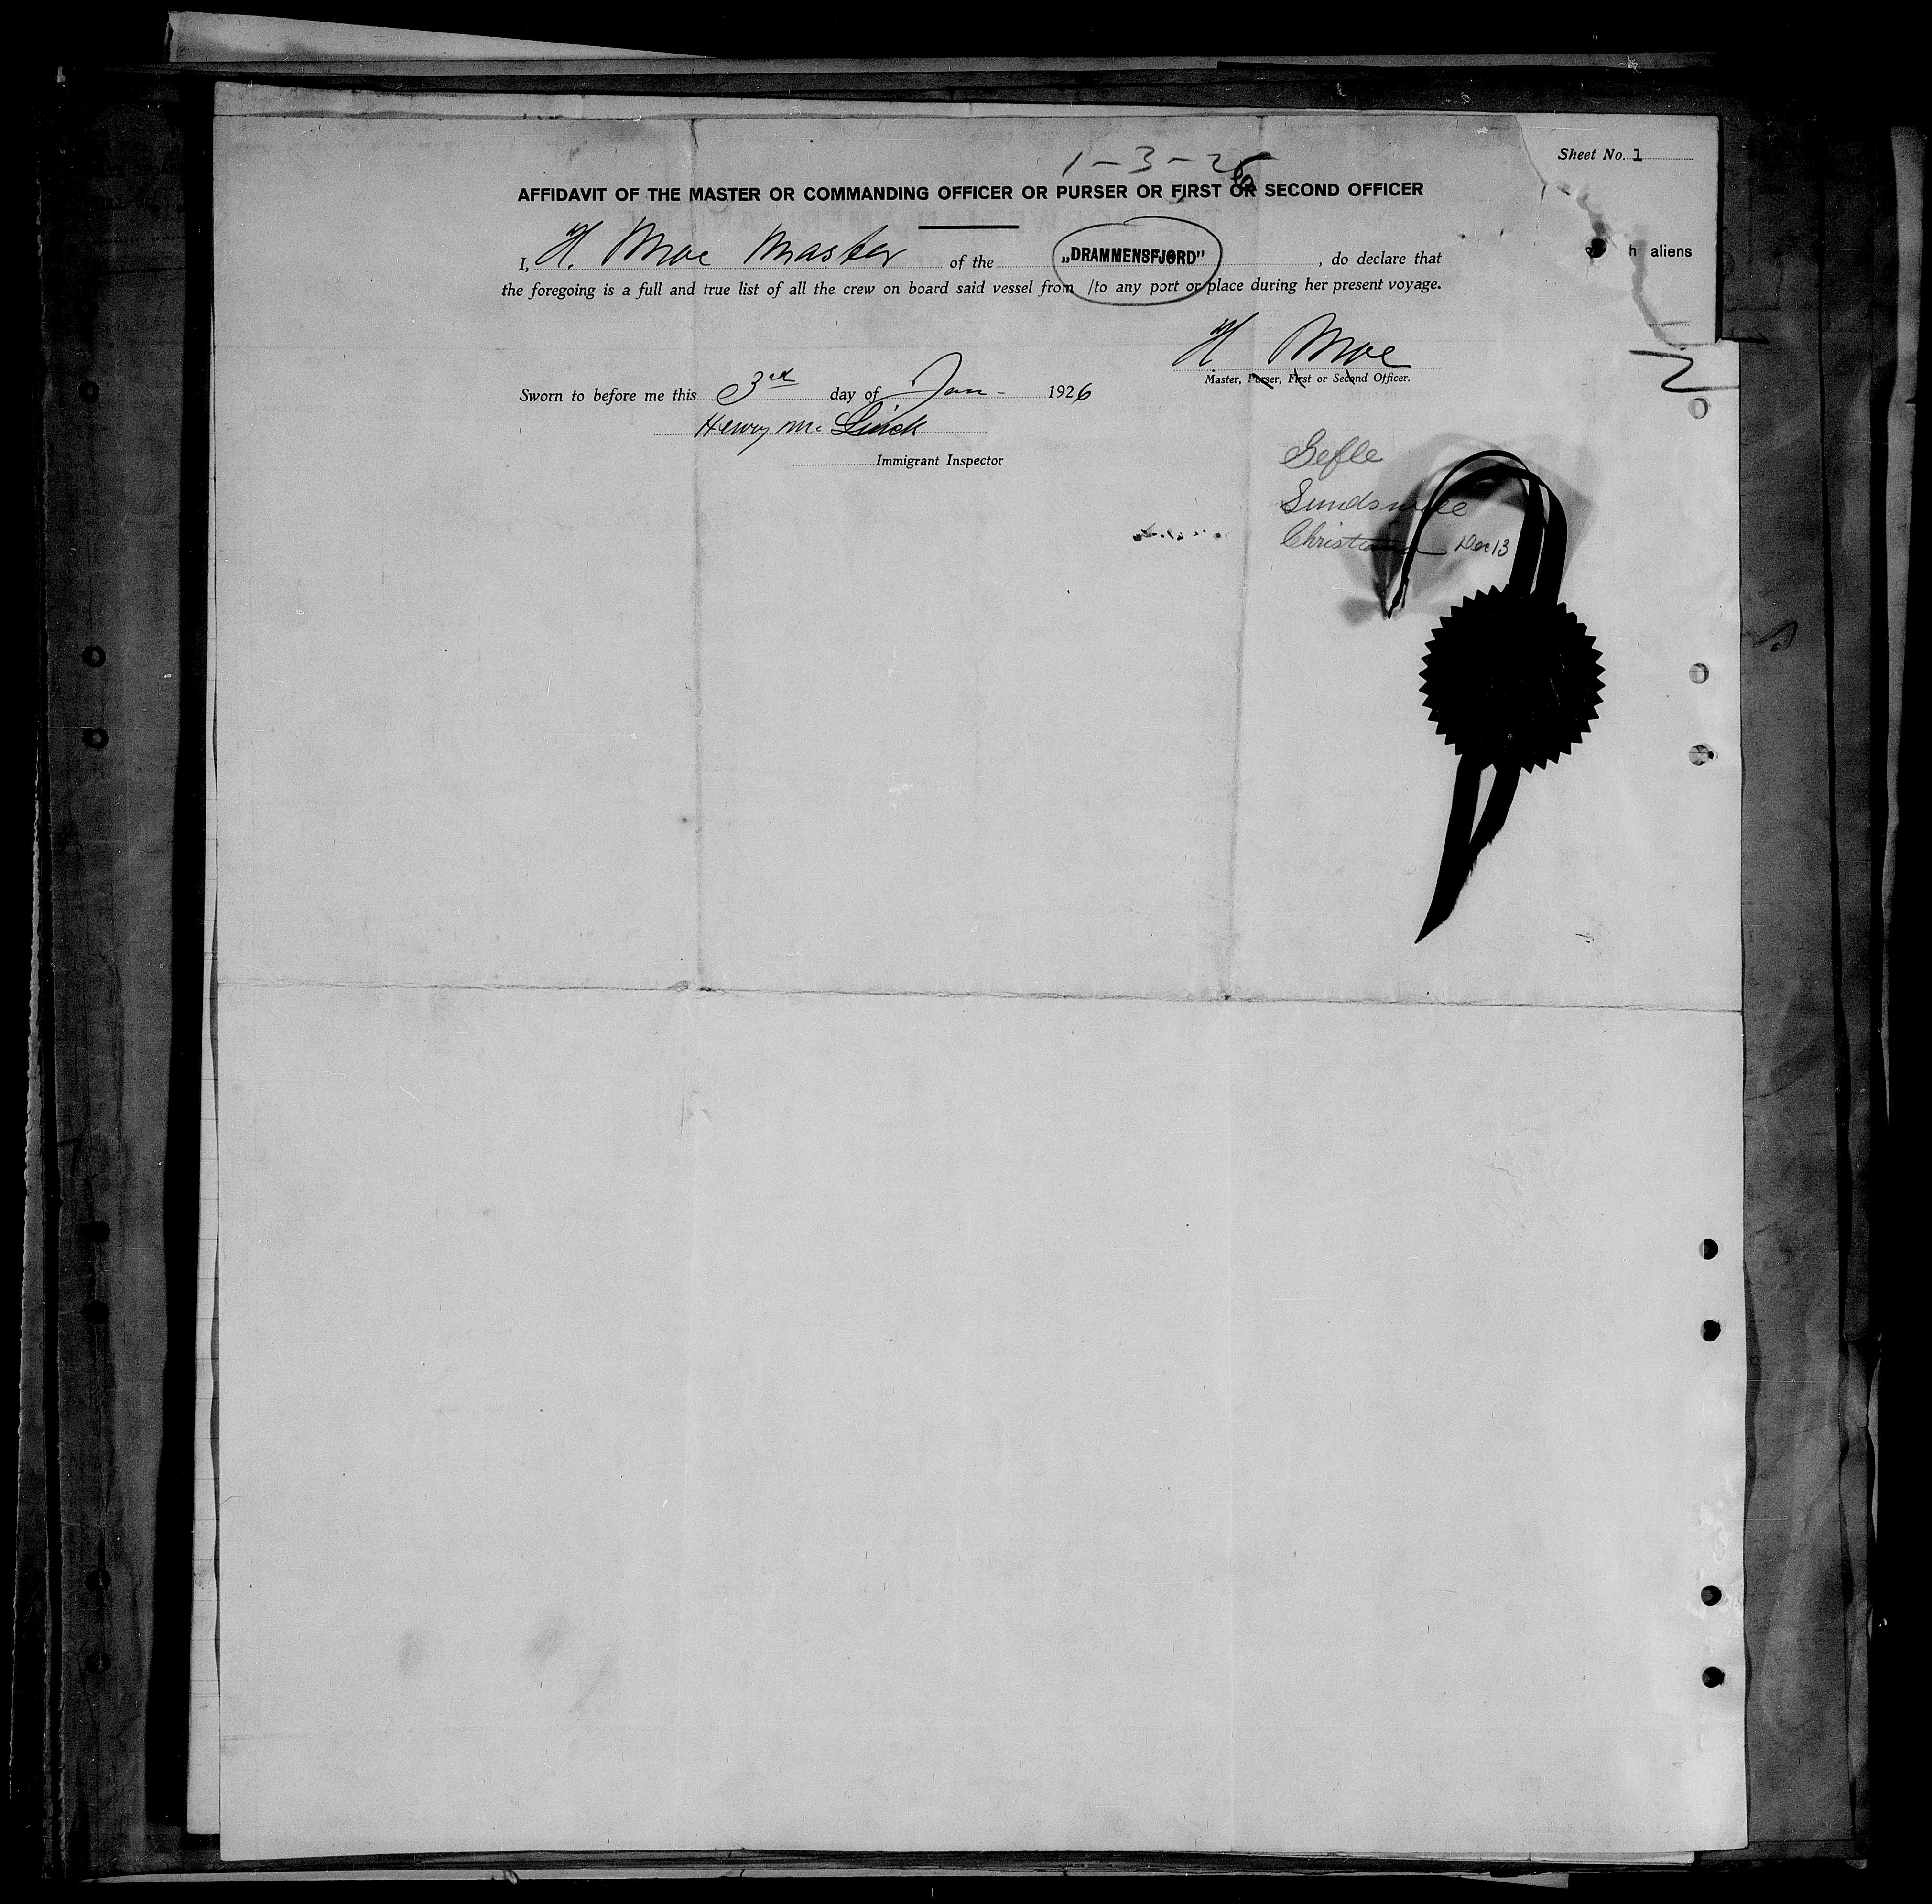 Sheet No. 1
1-3-26
AFFIDAVIT OF THE MASTER OR COMMANDING OFFICER OR PURSER OR FIRST OR SECOND OFFICER
I, H. Moe Master of the „DRAMMENSFJORD", do declare that
h aliens
the foregoing is a full and true list of all the crew on board said vessel from /to any port or place during her present voyage.
H Moe
Master, Purser, First or Second Officer.
2
Sworn to before me this 3rd day of Jan- 1926
Henry Mc
Immigrant Inspector
Gefle
Sundsvall
Dec 13